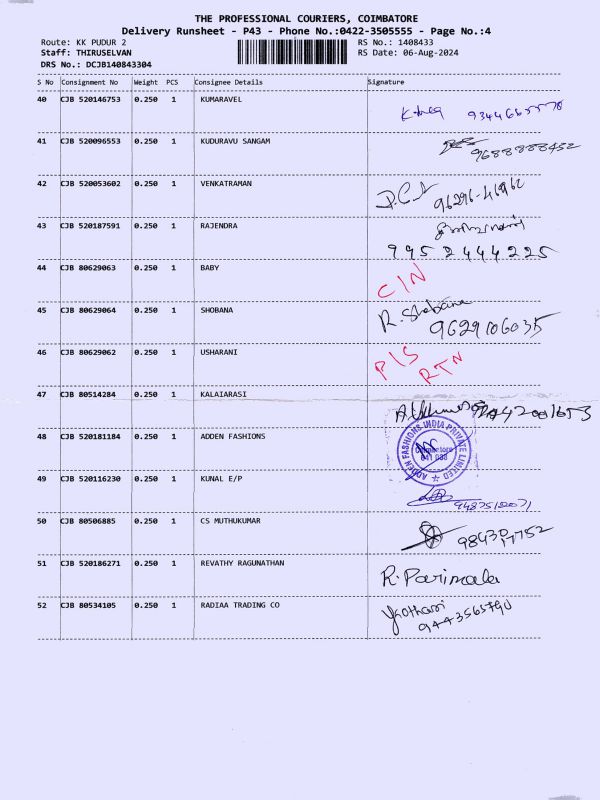 THE PROFESSIONAL COURIERS, COIMBATORE
Delivery Runsheet - P43 - Phone No.:0422-3505555 - Page No.:4
Route: KK PUDUR 2 RS No.: 1408433
Staff: THIRUSELVAN RS Date: 06-Aug-2024
DRS No.: DCJB140843304
S No Consignment No Weight PCS Consignee Details Signature
40 CJB 520146753 0.250 1 KUMARAVEL
41 CJB 520096553 0.250 1 KUDURAVU SANGAM 9688888452
42 CJB 520053602 0.250 1 VENKATRAMAN
43 CJB 520187591 0.250 1 RAJENDRA
9952444225
44 CJB 80629063 0.250 1 BABY C/N
45 CJB 80629064 0.250 1 SHOBANA R. Shobana
9629106035
46 CJB 80629062 0.250 1 USHARANI P/S
RTN
47 CJB 80514284 0.250 1 KALAIARASI
48 CJB 520181184 0.250 1 ADDEN FASHIONS ADDEN FASHIONS INDIA PRIVATE LIMITED
Coimbatore
641 038
49 CJB 520116230 0.250 1 KUNAL E/P
50 CJB 80506885 0.250 1 CS MUTHUKUMAR
51 CJB 520186271 0.250 1 REVATHY RAGUNATHAN R. Parimala
52 CJB 80534105 0.250 1 RADIAA TRADING CO Jyothasi